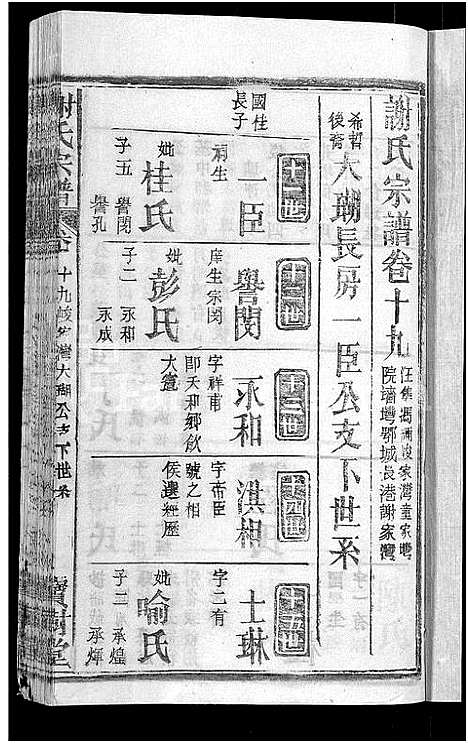 謝氏宗譜卷十九
院 墻塆鄂城長港謝家灣
希哲後裔 大瑚長房一臣公支下世系
國柱長子
十一世
一臣
妣桂氏
子五 譽閔 譽孔
十二世
譽閔
庠生宗閔
妣彭氏
子二 永和 永成
十三世
永和
字祥甫
即天和鄉飲大賓
十四世
淇相
字帝臣
號之相
侯選經歷
十五世
士琳
字二有
妣喻氏
子二 承煌 承煇
謝氏宗譜
卷十九
大瑚公支下世系
寶樹堂